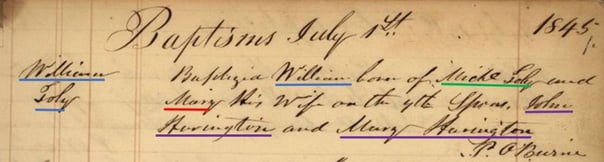 Baptisms July 1st 1845
William Baptizid William born of Michl Foly and
Foly Mary His Wife on the 9th Spons. John
Harington and Mary Harington
P. O Beirne